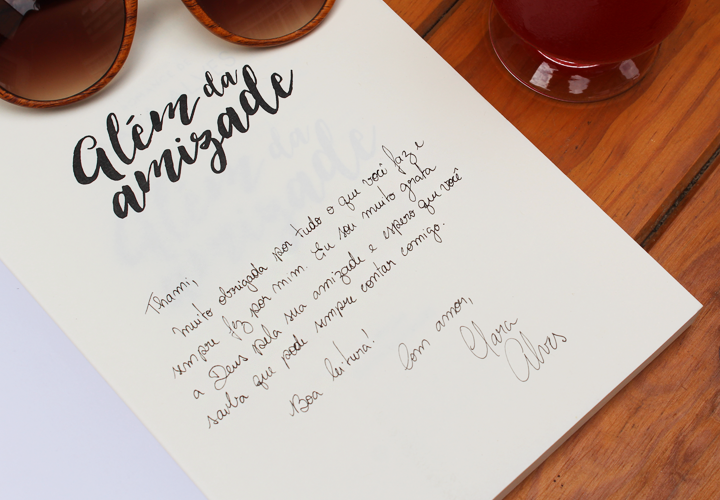 Além da
amizade
Thami,
muito obrigada por tudo o que você faz e
sempre fez por mim. Eu sou muito grata
a Deus pela sua amizade e espero que você
saiba que pode sempre contar comigo.
Boa leitura!
Com amor,
Clara
Alves